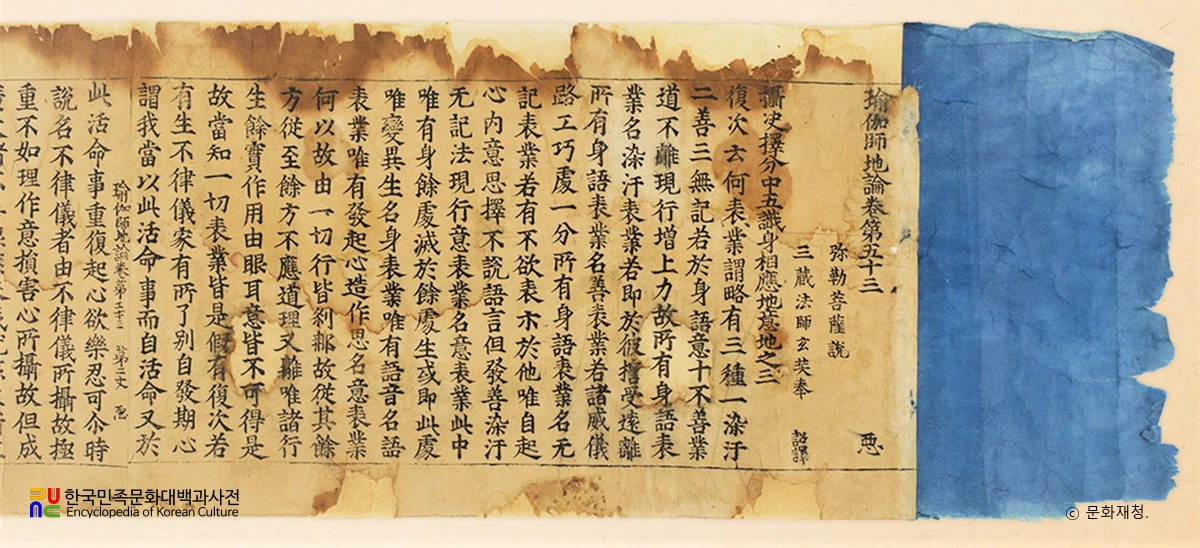 瑜伽師地論卷第五十三 惡
弥勒菩薩說
三藏法師玄奘奉 詔譯
攝決擇分中五識身相應地意地之三
復次云何表業謂略有三種一染汙
二善三無記若於身語意十不善業
道不離現行增上力故所有身語表
業名染汙表業若即於彼誓受遠離
所有身語表業名善表業若諸威儀
路工巧處一分所有身語表業名无
記表業若有不欲表示於他唯自起
心內意思擇不說語言但發善染汙
无記法現行意表業名意表業此中
唯有身餘處滅於餘處生或即此處
唯變異生名身表業唯有語音名語
表業唯有發起心造作思名意表業
何以故由一切行皆刹那故從其餘
方徙至餘方不應道理又離唯諸行
生餘實作用由眼耳意皆不可得是
故當知一切表業皆是假有復次若
有生不律儀家有所了別自發期心
謂我當以此活命事而自活命又於
瑜伽師地論卷第五十三 第二丈 惡
此活命事重復起心欲樂忍可尒時
說名不律儀者由不律儀所攝故極
重不如理作意損害心所攝故但成
한국민족문화대백과사전
Encyclopedia of Korean Culture
ⓒ 문화재청.